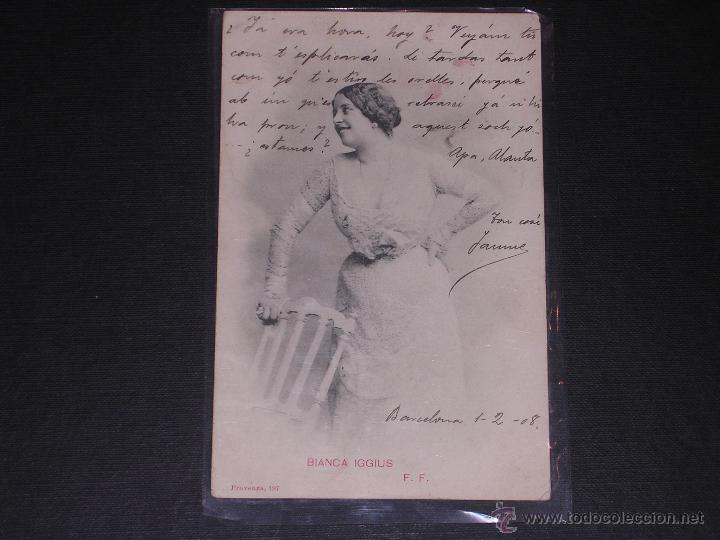 ¿Já era hora, hoy? Veyám tu
com t'esplicarás. Si tardas tant
com yó t'estiro les orelles, perqué
ab un qu'es retrasci já n'hi
ha prou; y aquest soch yó...
...¿estamos?
Apa, Alanta
Ton cosí
Jaume
Barcelona 1-2-08.
BIANCA IGGIUS
F. F.
Provenza, 197
todocoleccion
© www.todocoleccion.net